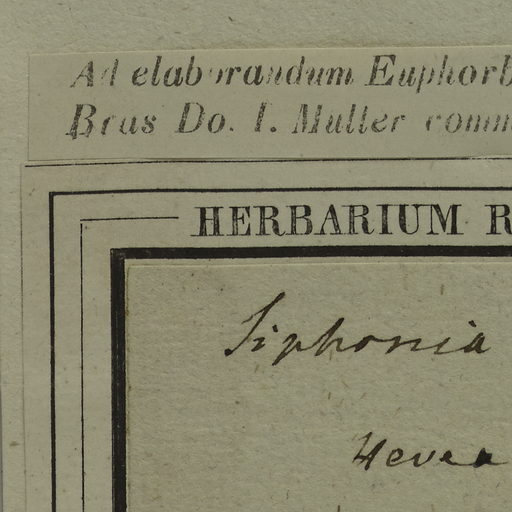 Ad elaborandum Euphorb
Bras Do. I. Muller comm
HERBARIUM R
Siphonia
Hevea